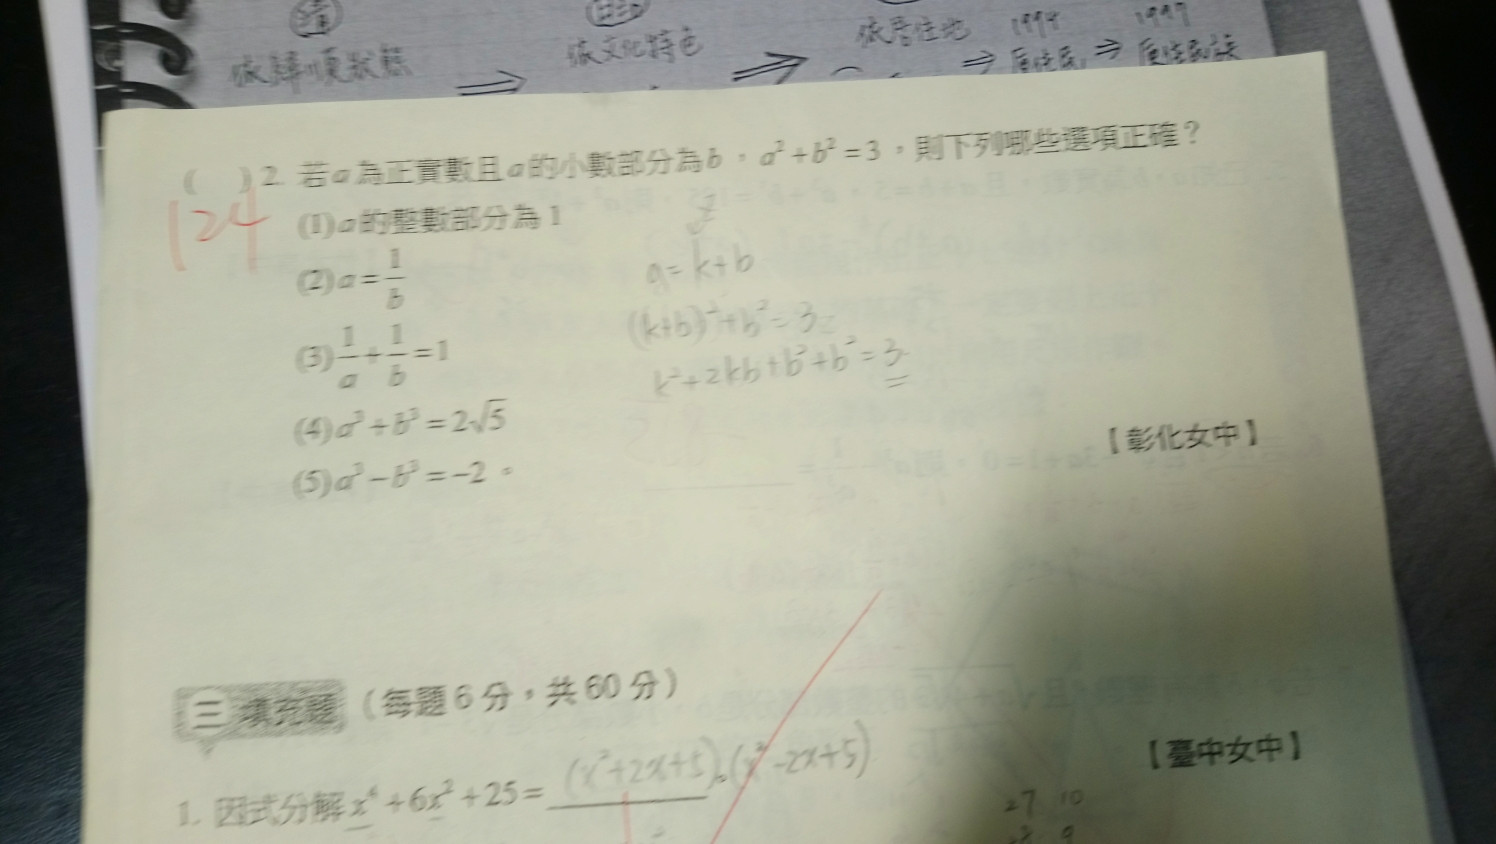 清
依歸順狀態
⇒
依文化特色
⇒
依居住地
⇒
1994
原住民
⇒
1997
原住民族
( ) 2. 若a為正實數且a的小數部分為b，a²+b²=3，則下列哪些選項正確？
124
(1) a的整數部分為1
(2) a=1/b
(3) 1/a+1/b=1
(4) a³+b³=2√5
(5) a³-b³=-2。
a=k+b
(k+b)²+b²=3
k²+2kb+b²+b²=3
【彰化女中】
三 填充題 （每題6分，共60分）
1. 因式分解x⁴+6x²+25= (x²+2x+5)(x²-2x+5)
【臺中女中】